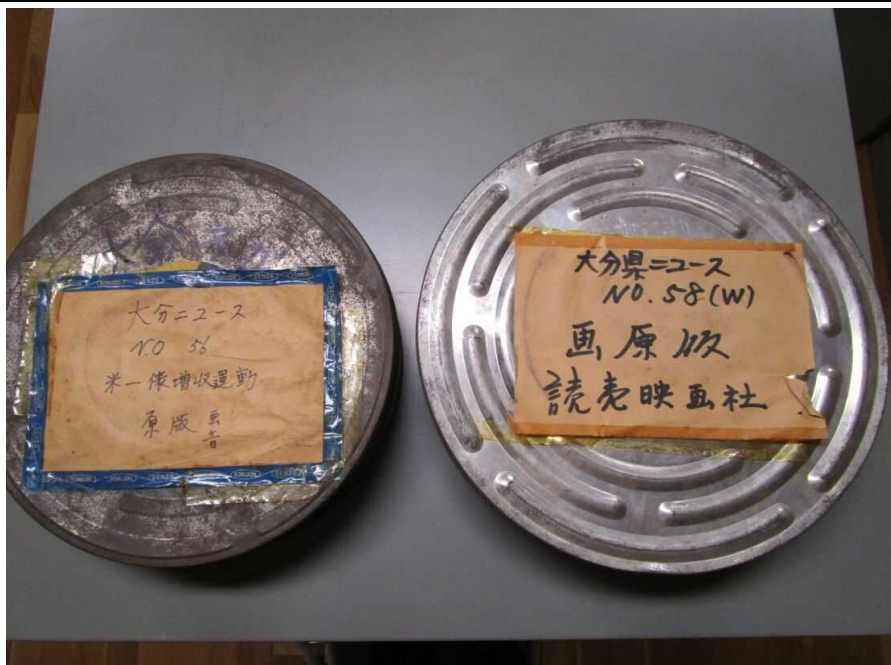 大分ニュース
NO 56
米一俵増収運動
原版 画
音
大分県ニュース
NO.58(W)
画原版
読売映画社